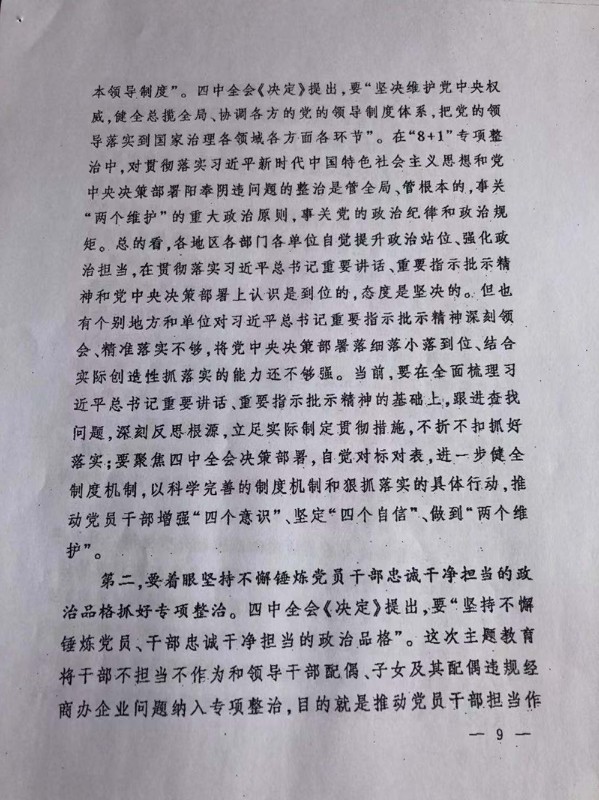 本领导制度”。四中全会《决定》提出，要“坚决维护党中央权
威，健全总揽全局、协调各方的党的领导制度体系，把党的领
导落实到国家治理各领域各方面各环节”。在“8+1”专项整
治中，对贯彻落实习近平新时代中国特色社会主义思想和党
中央决策部署阳奉阴违问题的整治是管全局、管根本的，事关
“两个维护”的重大政治原则，事关党的政治纪律和政治规
矩。总的看，各地区各部门各单位自觉提升政治站位、强化政
治担当，在贯彻落实习近平总书记重要讲话、重要指示批示精
神和党中央决策部署上认识是到位的，态度是坚决的。但也
有个别地方和单位对习近平总书记重要指示批示精神深刻领
会、精准落实不够，将党中央决策部署落细落小落到位、结合
实际创造性抓落实的能力还不够强。当前，要在全面梳理习
近平总书记重要讲话、重要指示批示精神的基础上，跟进查找
问题，深刻反思根源，立足实际制定贯彻措施，不折不扣抓好
落实；要聚焦四中全会决策部署，自觉对标对表，进一步健全
制度机制，以科学完善的制度机制和狠抓落实的具体行动，推
动党员干部增强“四个意识”、坚定“四个自信”、做到“两个维
护”。
第二，要着眼坚持不懈锤炼党员干部忠诚干净担当的政
治品格抓好专项整治。四中全会《决定》提出，要“坚持不懈
锤炼党员、干部忠诚干净担当的政治品格”。这次主题教育
将干部不担当不作为和领导干部配偶、子女及其配偶违规经
商办企业问题纳入专项整治，目的就是推动党员干部担当作
— 9 —